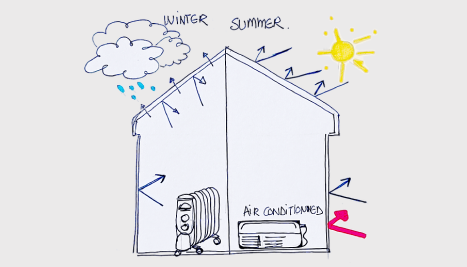 WINTER SUMMER.
AIR CONDITIONNED